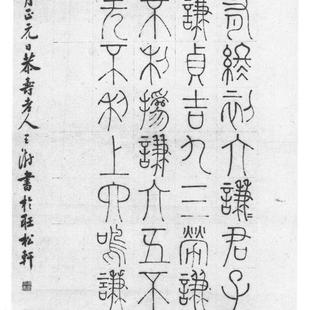 有終初六謙君子
謙貞吉九三勞謙
不利撝謙六五不
无不利上六鳴謙
月正元日恭壽老人王澍書於松軒